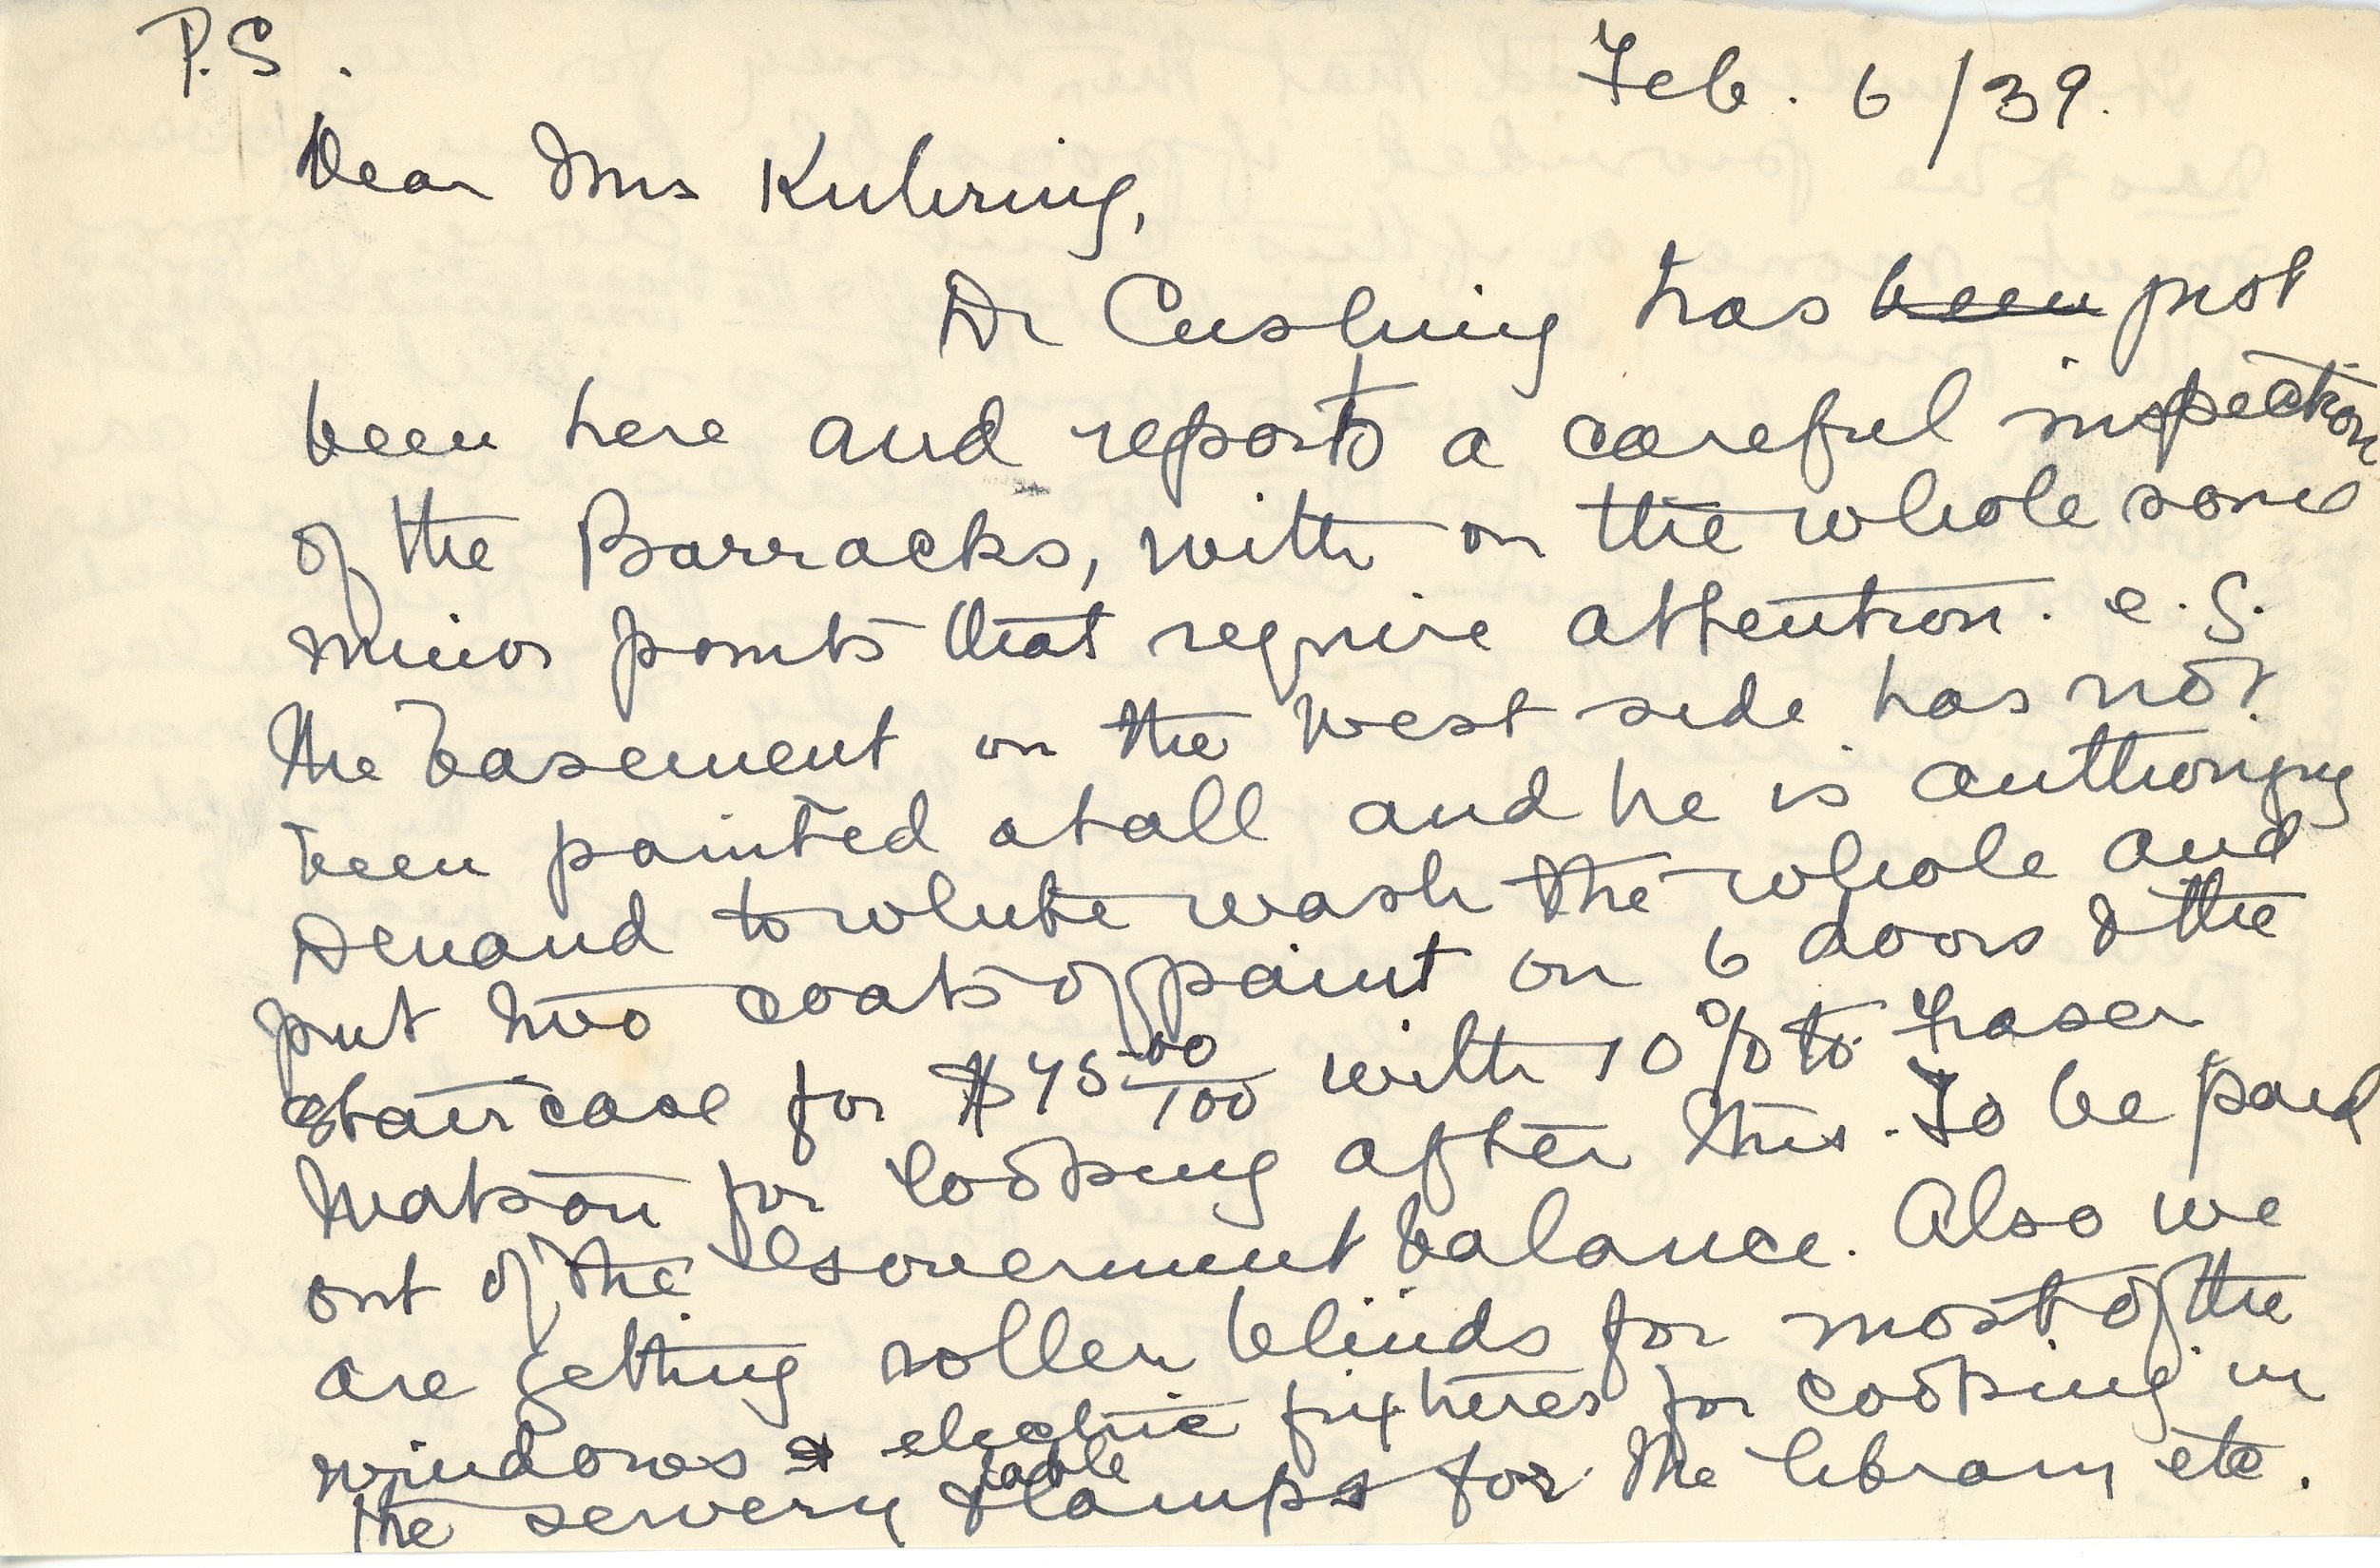 P.S.
Feb. 6/39.
Dear Mrs Kuhring,
Dr Cushing has been just
been here and reports a careful inspection
of the Barracks, with on the whole some
minor points that require attention. e.g.
the basement on the west side has not
been painted at all and he is authorizing
Denand to white wash the whole and
put two coats of paint on 6 doors & the
staircase for $45 00/100 with 10% to Fraser
Watson for looking after this. To be paid
out of the Government balance. Also we
are getting roller blinds for most of the
windows & electric fixtures for cooking in
the servery & table lamps for the library etc.